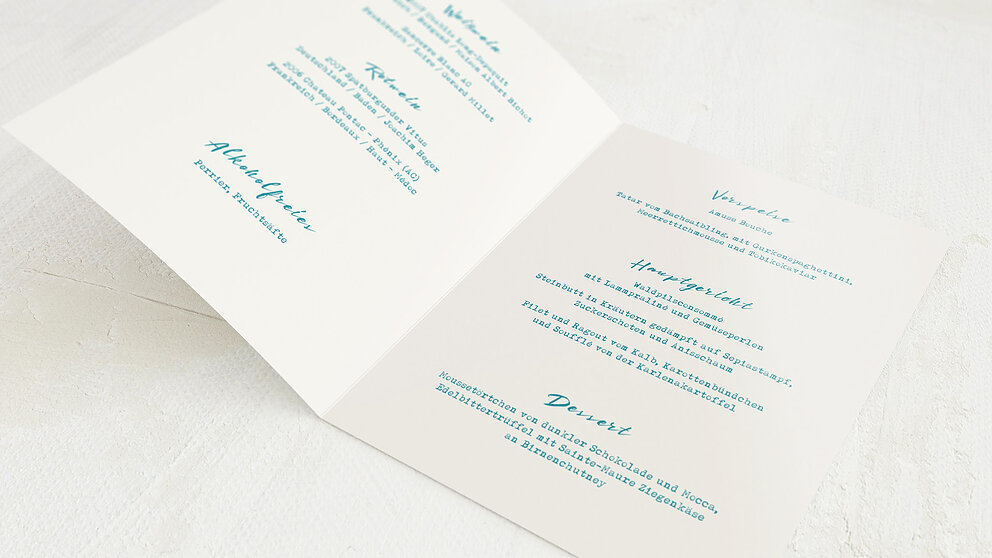 Weißwein
Long-Depaquit
Frankreich / Burgund / Maison Albert Bichot
Sancerre Blanc AC
Frankreich / Loire / Gerard Millet
Rotwein
2007 Spätburgunder Vitus
Deutschland / Baden / Joachim Heger
2006 Chateau Pontac - Phénix (AC)
Frankreich / Bordeaux / Haut - Médoc
Alkoholfreies
Perrier, Fruchtsäfte
Vorspeise
Amuse Bouche
Tatar vom Bachsaibling, mit Gurkenspaghettini,
Meerrettichmousse und Tobikokaviar
Hauptgericht
Waldpilzconsommé
mit Lammpraliné und Gemüseperlen
Steinbutt in Kräutern gedämpft auf Sepiastampf,
Zuckerschoten und Anisschaum
Filet und Ragout vom Kalb, Karottenbündchen
und Soufflé von der Karlenakartoffel
Dessert
Moussetörtchen von dunkler Schokolade und Mocca,
Edelbittertrüffel mit Sainte-Maure Ziegenkäse
an Birnenchutney